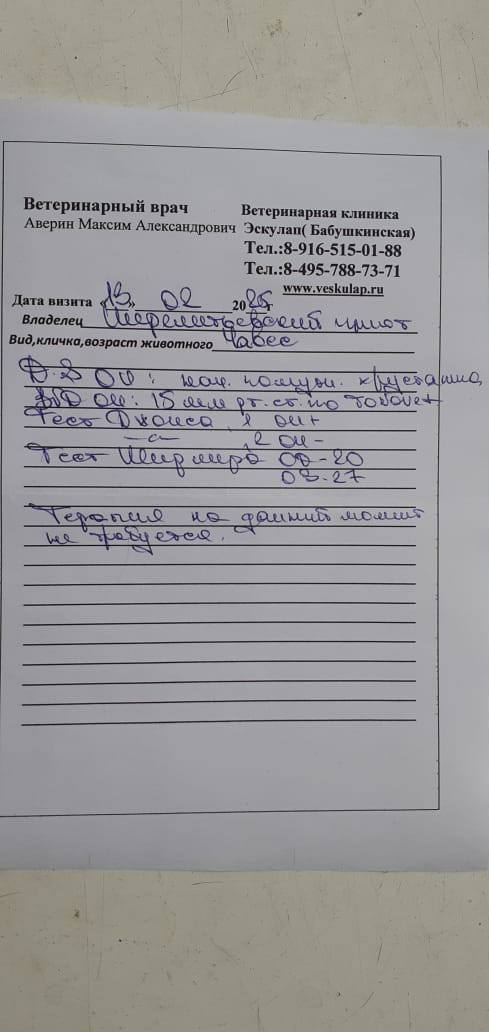 Ветеринарный врач
Аверин Максим Александрович
Ветеринарная клиника
Эскулап( Бабушкинская)
Тел.:8-916-515-01-88
Тел.:8-495-788-73-71
www.veskulap.ru
Дата визита «13» 02 2025г
Владелец Шереметьевский приют
Вид,кличка,возраст животного Чавес
D.S OU: нач. помутн. хрусталика
ВГД OU: 15 мм рт.ст. по Tonovet
Тест Джонса 1 OU+
—"— 2 OU-
Тест Ширмера OD-20
OS-27
Терапия на данный момент
не требуется.